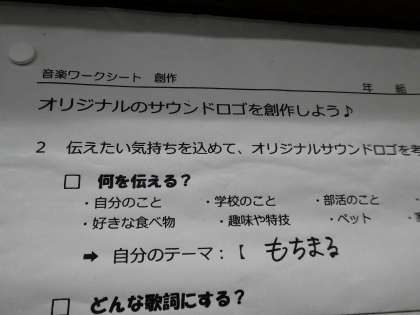 音楽ワークシート 創作
年 組
オリジナルのサウンドロゴを創作しよう♪
2 伝えたい気持ちを込めて、オリジナルサウンドロゴを考
□ 何を伝える？
・自分のこと ・学校のこと ・部活のこと
・好きな食べ物 ・趣味や特技 ・ペット
➡ 自分のテーマ：【 もちまる
□ どんな歌詞にする？